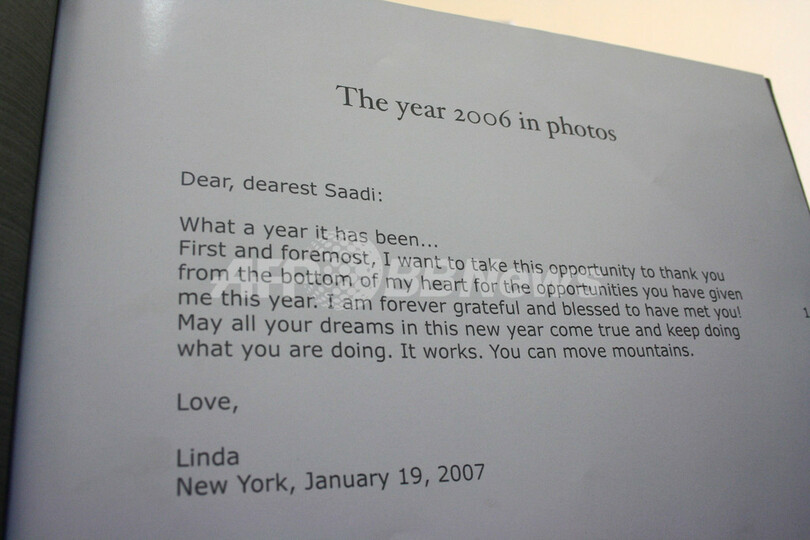 The year 2006 in photos
Dear, dearest Saadi:
What a year it has been...
First and foremost, I want to take this opportunity to thank you
from the bottom of my heart for the opportunities you have given
me this year. I am forever grateful and blessed to have met you!
May all your dreams in this new year come true and keep doing
what you are doing. It works. You can move mountains.
Love,
Linda
New York, January 19, 2007
AFP BBNews
1